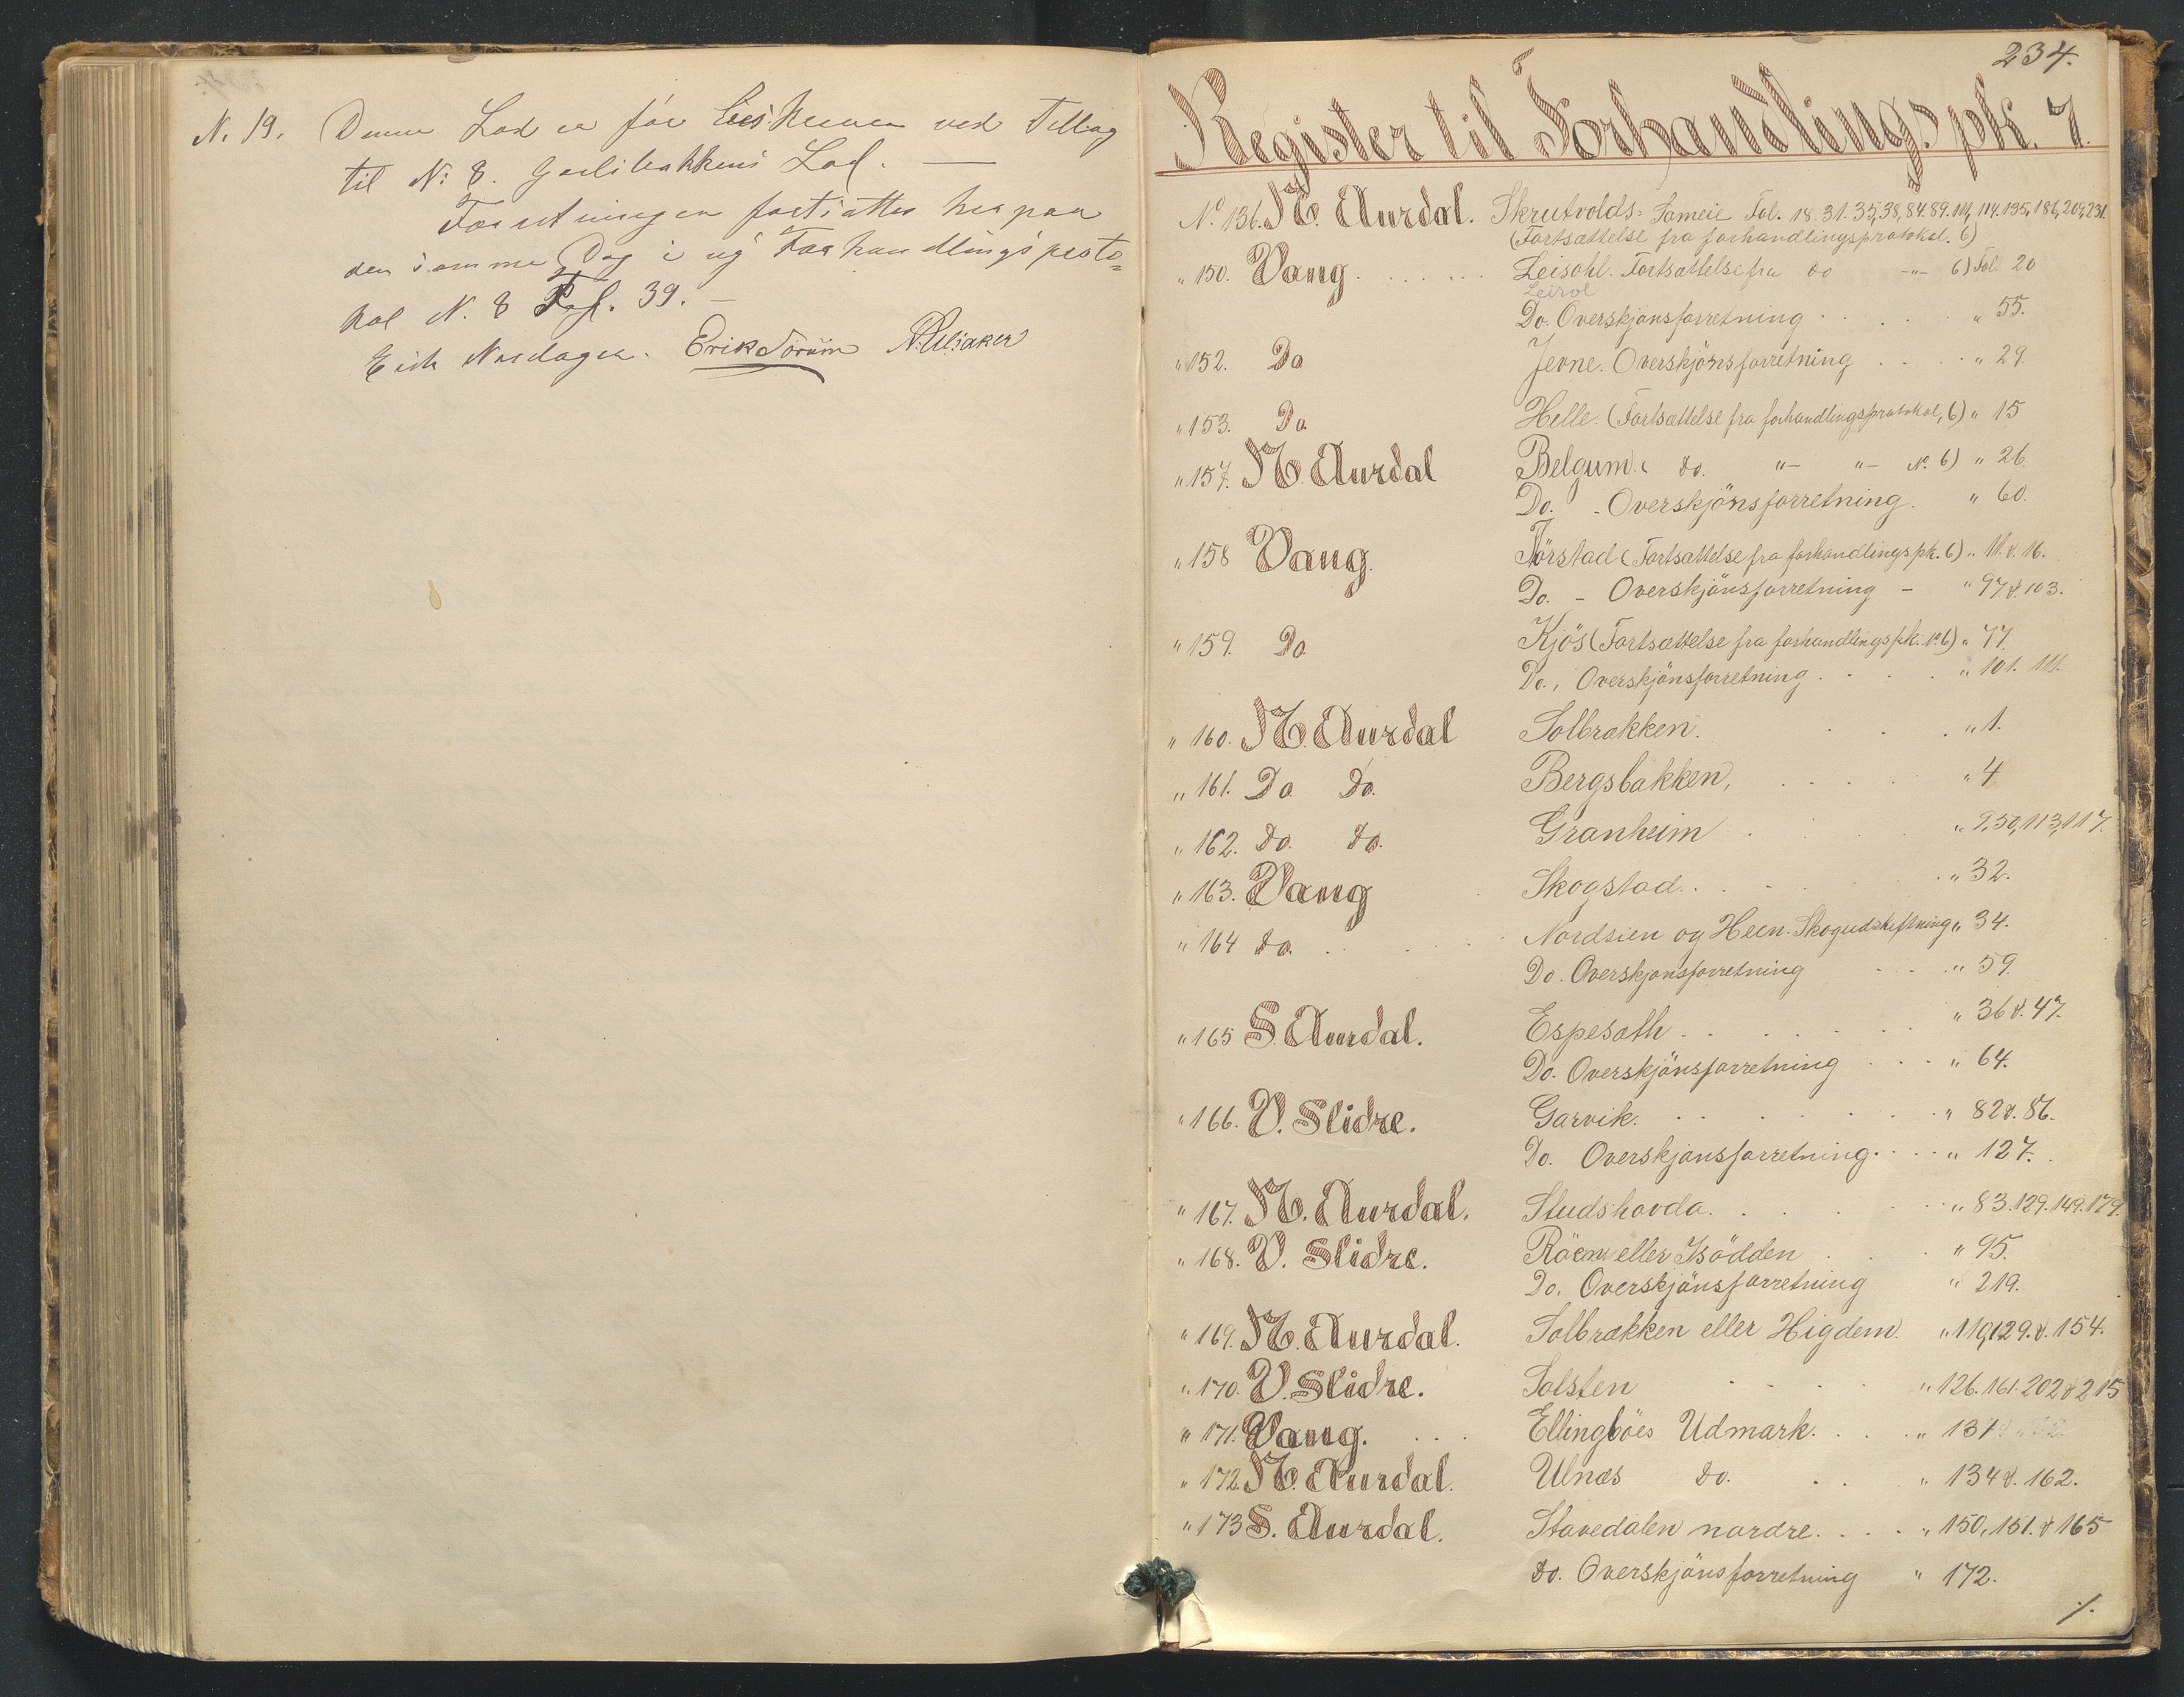 N. 19. Denne Lod er før beskreven ved Tillæg
til N: 8. Garlibakkens Lod. —
Forretningen fortsættes herpaa
den samme Dag i ny Forhandlingsproto=
kol N. 8 Fol. 39. —
Erik Nordagen. Erik Sörum N. Ulsaker
234.
Register til Forhandlingspk. 7.
No. 136. N. Aurdal. Skrutvolds-Sameie Fol. 18. 31. 35, 38, 84. 89. 111, 114. 135, 186, 209, 231.
(Fortsættelse fra forhandlingsprotokol. 6)
" 150. Vang. Leisohl. Fortsættelse fra do -"- 6) Fol. 20
Leirol
Do. Overskjönsforretning " 55.
" 152. Do Jevne. Overskjönsforretning " 29.
" 153. Do. Helle. (Fortsættelse fra forhandlingsprotokol, 6) " 15
" 157. N. Aurdal Belgum. ( do. "- "- N. 6) " 26.
Do. - Overskjönsforretning. " 60.
" 158 Vang. Törstad (Fortsættelse fra forhandlingspk. 6) " 11. & 16.
Do. - Overskjönsforretning - " 97 &. 103.
" 159. Do. Kjös (Fortsættelse fra forhandlingspk. N. 6) " 77.
Do., Overskjönsforretning. " 101. 111.
" 160. N. Aurdal Solbrækken. " 1.
" 161. Do. Do. Bergsbakken, " 4
" 162. do. do. Granheim " 9, 50, 113, 117.
" 163. Vang Skogstad. " 32.
" 164 do. Nordsien og Heen. Skogudskiftning " 34.
Do. Overskjonsforretning " 59.
" 165 S. Aurdal. Espesæth. " 36 &. 47.
Do. Overskjönsforretning " 64.
" 166. V. Slidre. Garvik. " 82 &. 86.
Do. Overskjönsforretning. " 127.
" 167. N. Aurdal. Studshovda. " 83. 129. 149. 179.
" 168. V. Slidre. Röen eller Isödden " 95.
Do. Overskjönsforretning " 219.
" 169. N. Aurdal. Solbrækken eller Higdem. " 119, 129. &. 154.
" 170. V. Slidre. Solsten " 126. 161. 202 & 215
" 171. Vang. Ellingböes Udmark. " 131
" 172. N. Aurdal. Ulnæs do. " 134 &. 162.
" 173 S. Aurdal. Stavedalen nordre. " 150, 151. & 165
do. Overskjönsforretning " 172.
./.